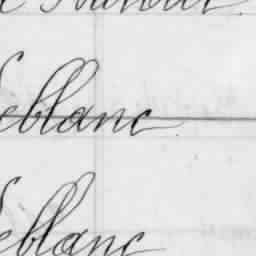 Leblanc
Leblanc